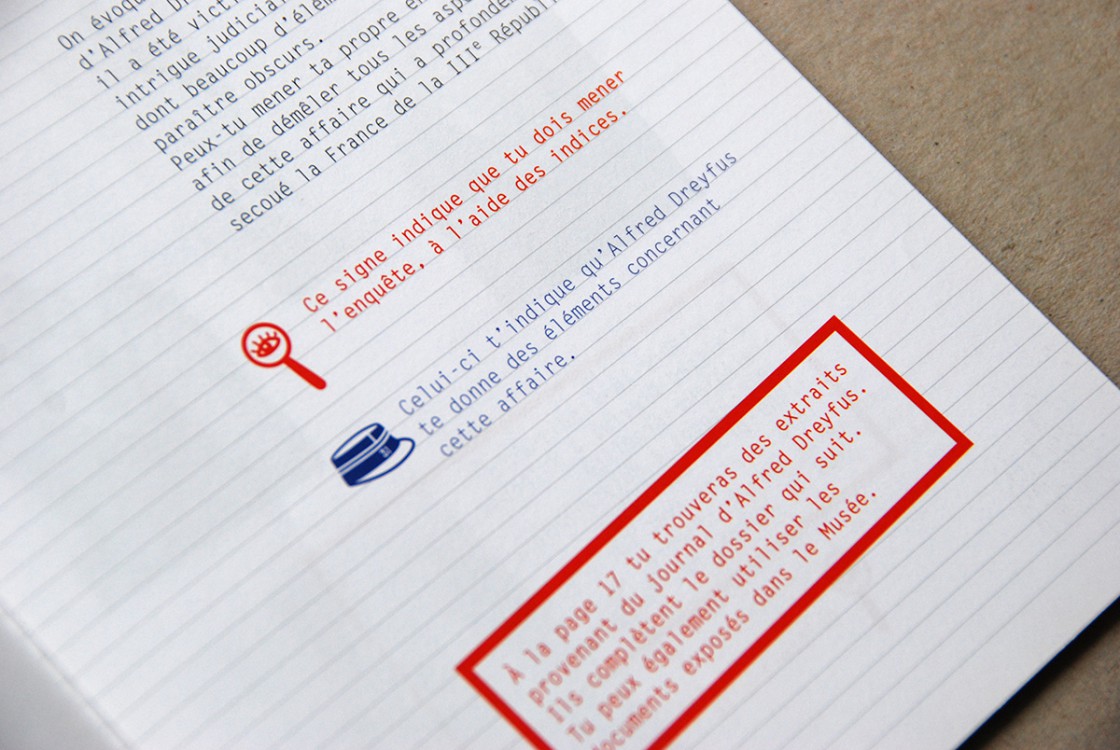 On évoq
d'Alfred Dr
il a été vict
intrigue judiciai
dont beaucoup d'élém
paraître obscurs.
Peux-tu mener ta propre en
afin de démêler tous les aspe
de cette affaire qui a profondé
secoué la France de la IIIe Républi
Ce signe indique que tu dois mener
l'enquête, à l'aide des indices.
Celui-ci t'indique qu'Alfred Dreyfus
te donne des éléments concernant
cette affaire.
À la page 17 tu trouveras des extraits
provenant du journal d'Alfred Dreyfus.
Ils complètent le dossier qui suit.
Tu peux également utiliser les
documents exposés dans le Musée.